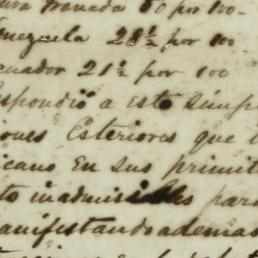 eva Granada 50 por 100.
enezuela 28½ por 100
cuador 21½ por 100
espondió a esto simpl
iones Esteriores que l
icano en sus primiti
to inadmisibles para
anifestando ademas